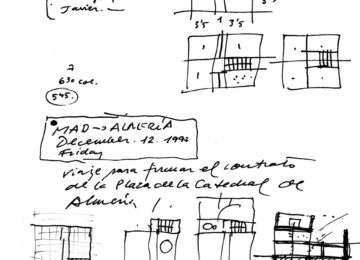 Javier.—
3'5 1 3'5
7
630 col.
545.
MAD → ALMERÍA
December. 12. 1997
Friday
viaje para firmar el contrato
de la Plaza de la Catedral de
Almería /.